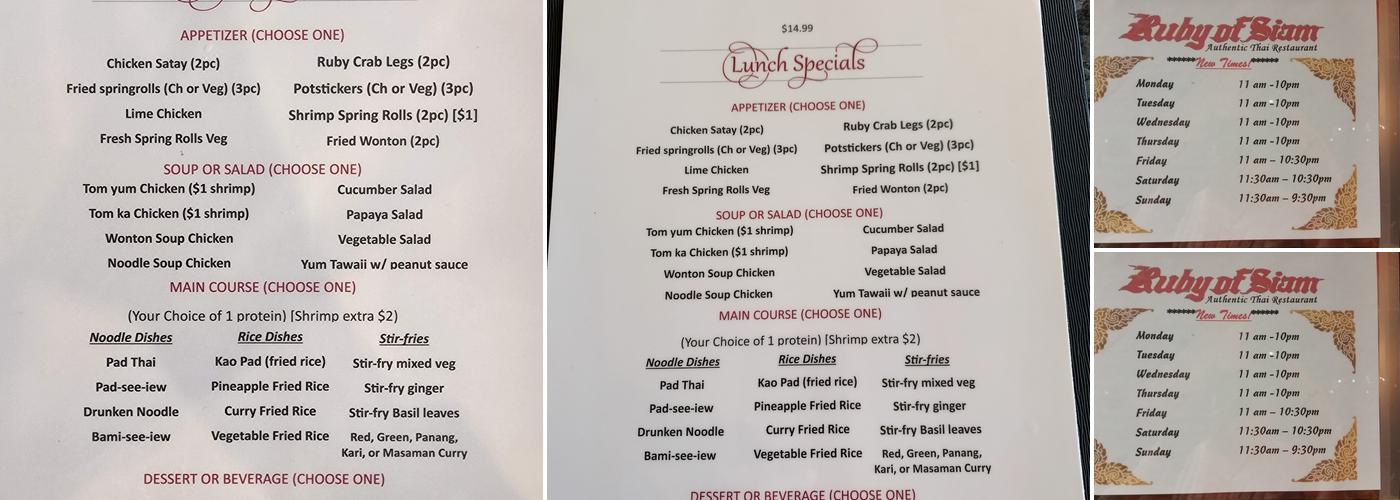 APPETIZER (CHOOSE ONE)
Chicken Satay (2pc) Ruby Crab Legs (2pc)
Fried springrolls (Ch or Veg) (3pc) Potstickers (Ch or Veg) (3pc)
Lime Chicken Shrimp Spring Rolls (2pc) [$1]
Fresh Spring Rolls Veg Fried Wonton (2pc)
SOUP OR SALAD (CHOOSE ONE)
Tom yum Chicken ($1 shrimp) Cucumber Salad
Tom ka Chicken ($1 shrimp) Papaya Salad
Wonton Soup Chicken Vegetable Salad
Noodle Soup Chicken Yum Tawaii w/ peanut sauce
MAIN COURSE (CHOOSE ONE)
(Your Choice of 1 protein) [Shrimp extra $2)
Noodle Dishes Rice Dishes Stir-fries
Pad Thai Kao Pad (fried rice) Stir-fry mixed veg
Pad-see-iew Pineapple Fried Rice Stir-fry ginger
Drunken Noodle Curry Fried Rice Stir-fry Basil leaves
Bami-see-iew Vegetable Fried Rice Red, Green, Panang,
Kari, or Masaman Curry
DESSERT OR BEVERAGE (CHOOSE ONE)
$14.99
Lunch Specials
APPETIZER (CHOOSE ONE)
Chicken Satay (2pc) Ruby Crab Legs (2pc)
Fried springrolls (Ch or Veg) (3pc) Potstickers (Ch or Veg) (3pc)
Lime Chicken Shrimp Spring Rolls (2pc) [$1]
Fresh Spring Rolls Veg Fried Wonton (2pc)
SOUP OR SALAD (CHOOSE ONE)
Tom yum Chicken ($1 shrimp) Cucumber Salad
Tom ka Chicken ($1 shrimp) Papaya Salad
Wonton Soup Chicken Vegetable Salad
Noodle Soup Chicken Yum Tawaii w/ peanut sauce
MAIN COURSE (CHOOSE ONE)
(Your Choice of 1 protein) [Shrimp extra $2)
Noodle Dishes Rice Dishes Stir-fries
Pad Thai Kao Pad (fried rice) Stir-fry mixed veg
Pad-see-iew Pineapple Fried Rice Stir-fry ginger
Drunken Noodle Curry Fried Rice Stir-fry Basil leaves
Bami-see-iew Vegetable Fried Rice Red, Green, Panang,
Kari, or Masaman Curry
DESSERT OR BEVERAGE (CHOOSE ONE)
Ruby of Siam
Authentic Thai Restaurant
******New Times!******
Monday 11 am -10pm
Tuesday 11 am -10pm
Wednesday 11 am -10pm
Thursday 11 am -10pm
Friday 11 am – 10:30pm
Saturday 11:30am – 10:30pm
Sunday 11:30am – 9:30pm
Ruby of Siam
Authentic Thai Restaurant
******New Times!******
Monday 11 am -10pm
Tuesday 11 am -10pm
Wednesday 11 am -10pm
Thursday 11 am -10pm
Friday 11 am – 10:30pm
Saturday 11:30am – 10:30pm
Sunday 11:30am – 9:30pm